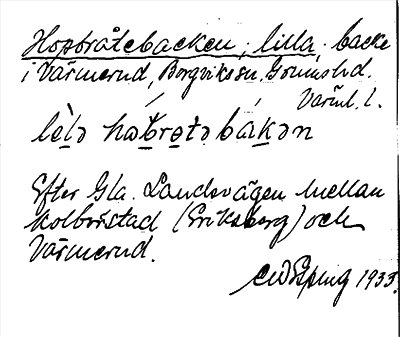 Hopbråtebacken, lilla, backe
i Värmerud, Borgviks sn. Grums hd.
Värml. l.
lèlə hωbrətəbákən
Efter Gla. Landsvägen mellan
Kolbristad (Eriksberg) och
Värmerud.
1933.